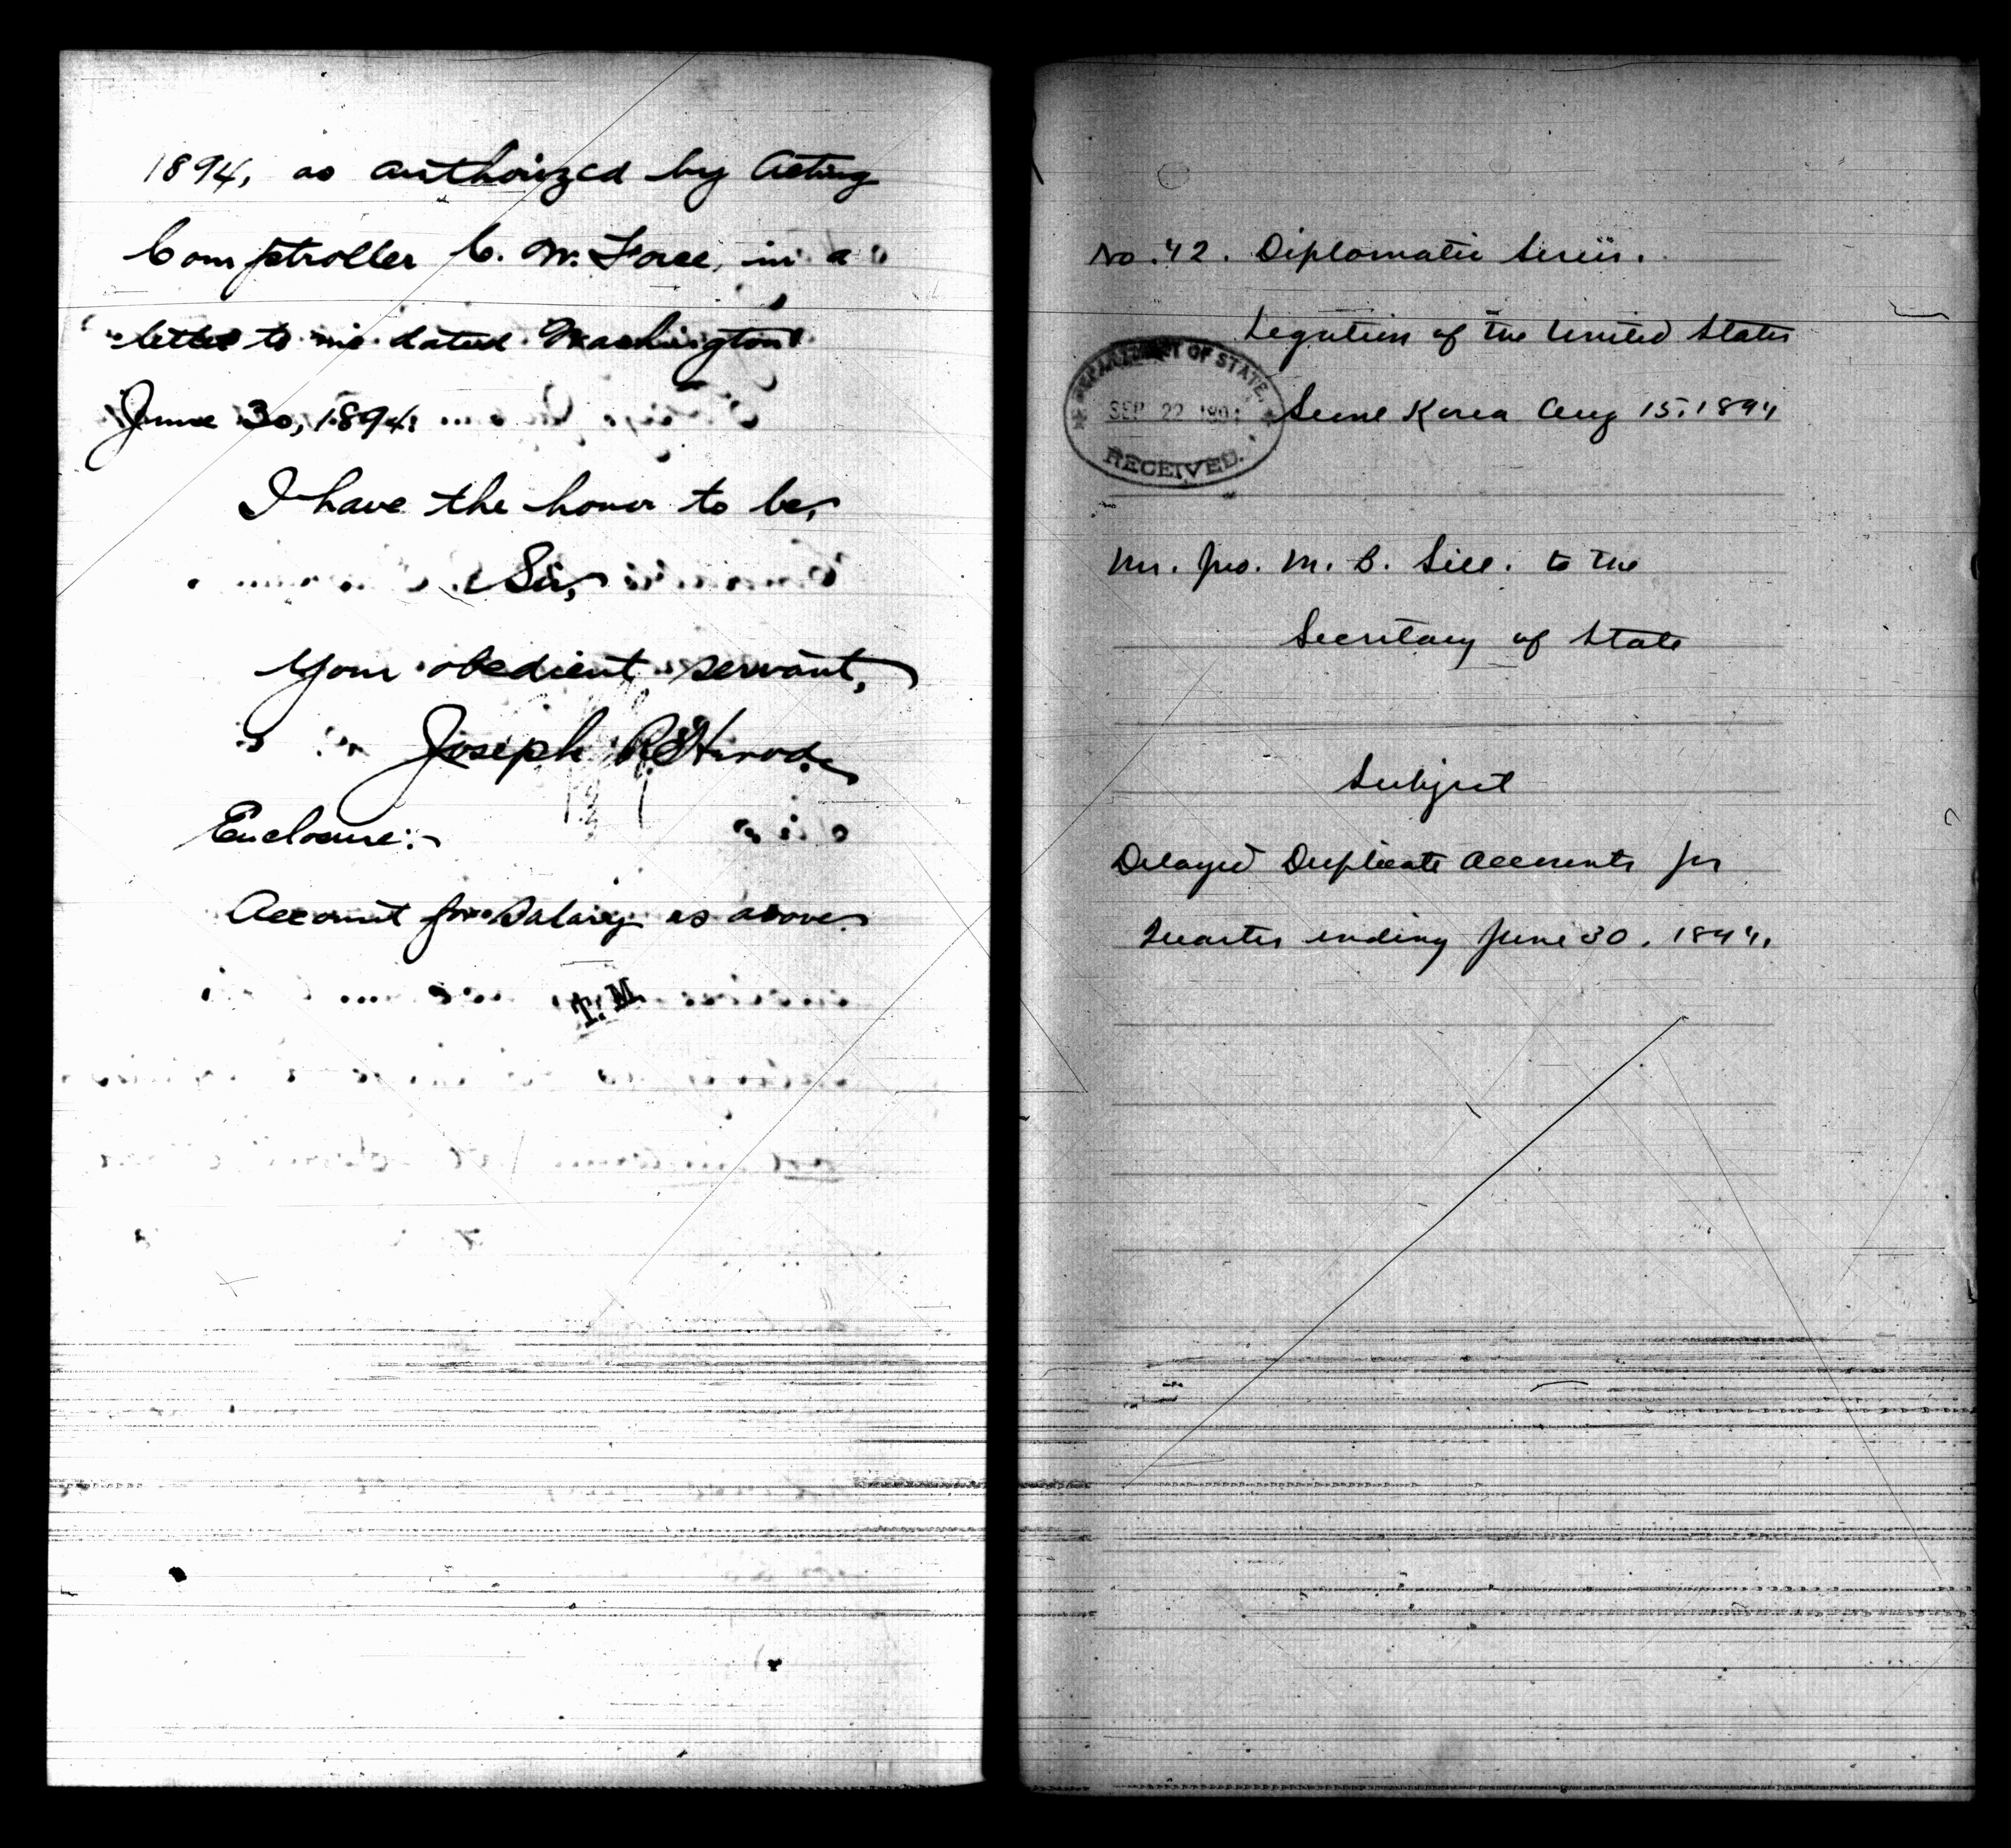 1894, as authorized by Acting
Comptroller C. M. Force, in a
letter to me dated Washington
June 30, 1894.
I have the honor to be,
Sir,
Your obedient servant,
Joseph R. Herod.
Enclosure:-
Account for Salary as above.
T. M.
No. 42. Diplomatic Series.
Legation of the United States
DEPARTMENT OF STATE,
SEP 22 1894
RECEIVED.
Seoul Korea Aug 15. 1894
Mr. Jno. M. B. Sill. to the
Secretary of State
Subject
Delayed Duplicate Accounts for
Quarter ending June 30. 1894.